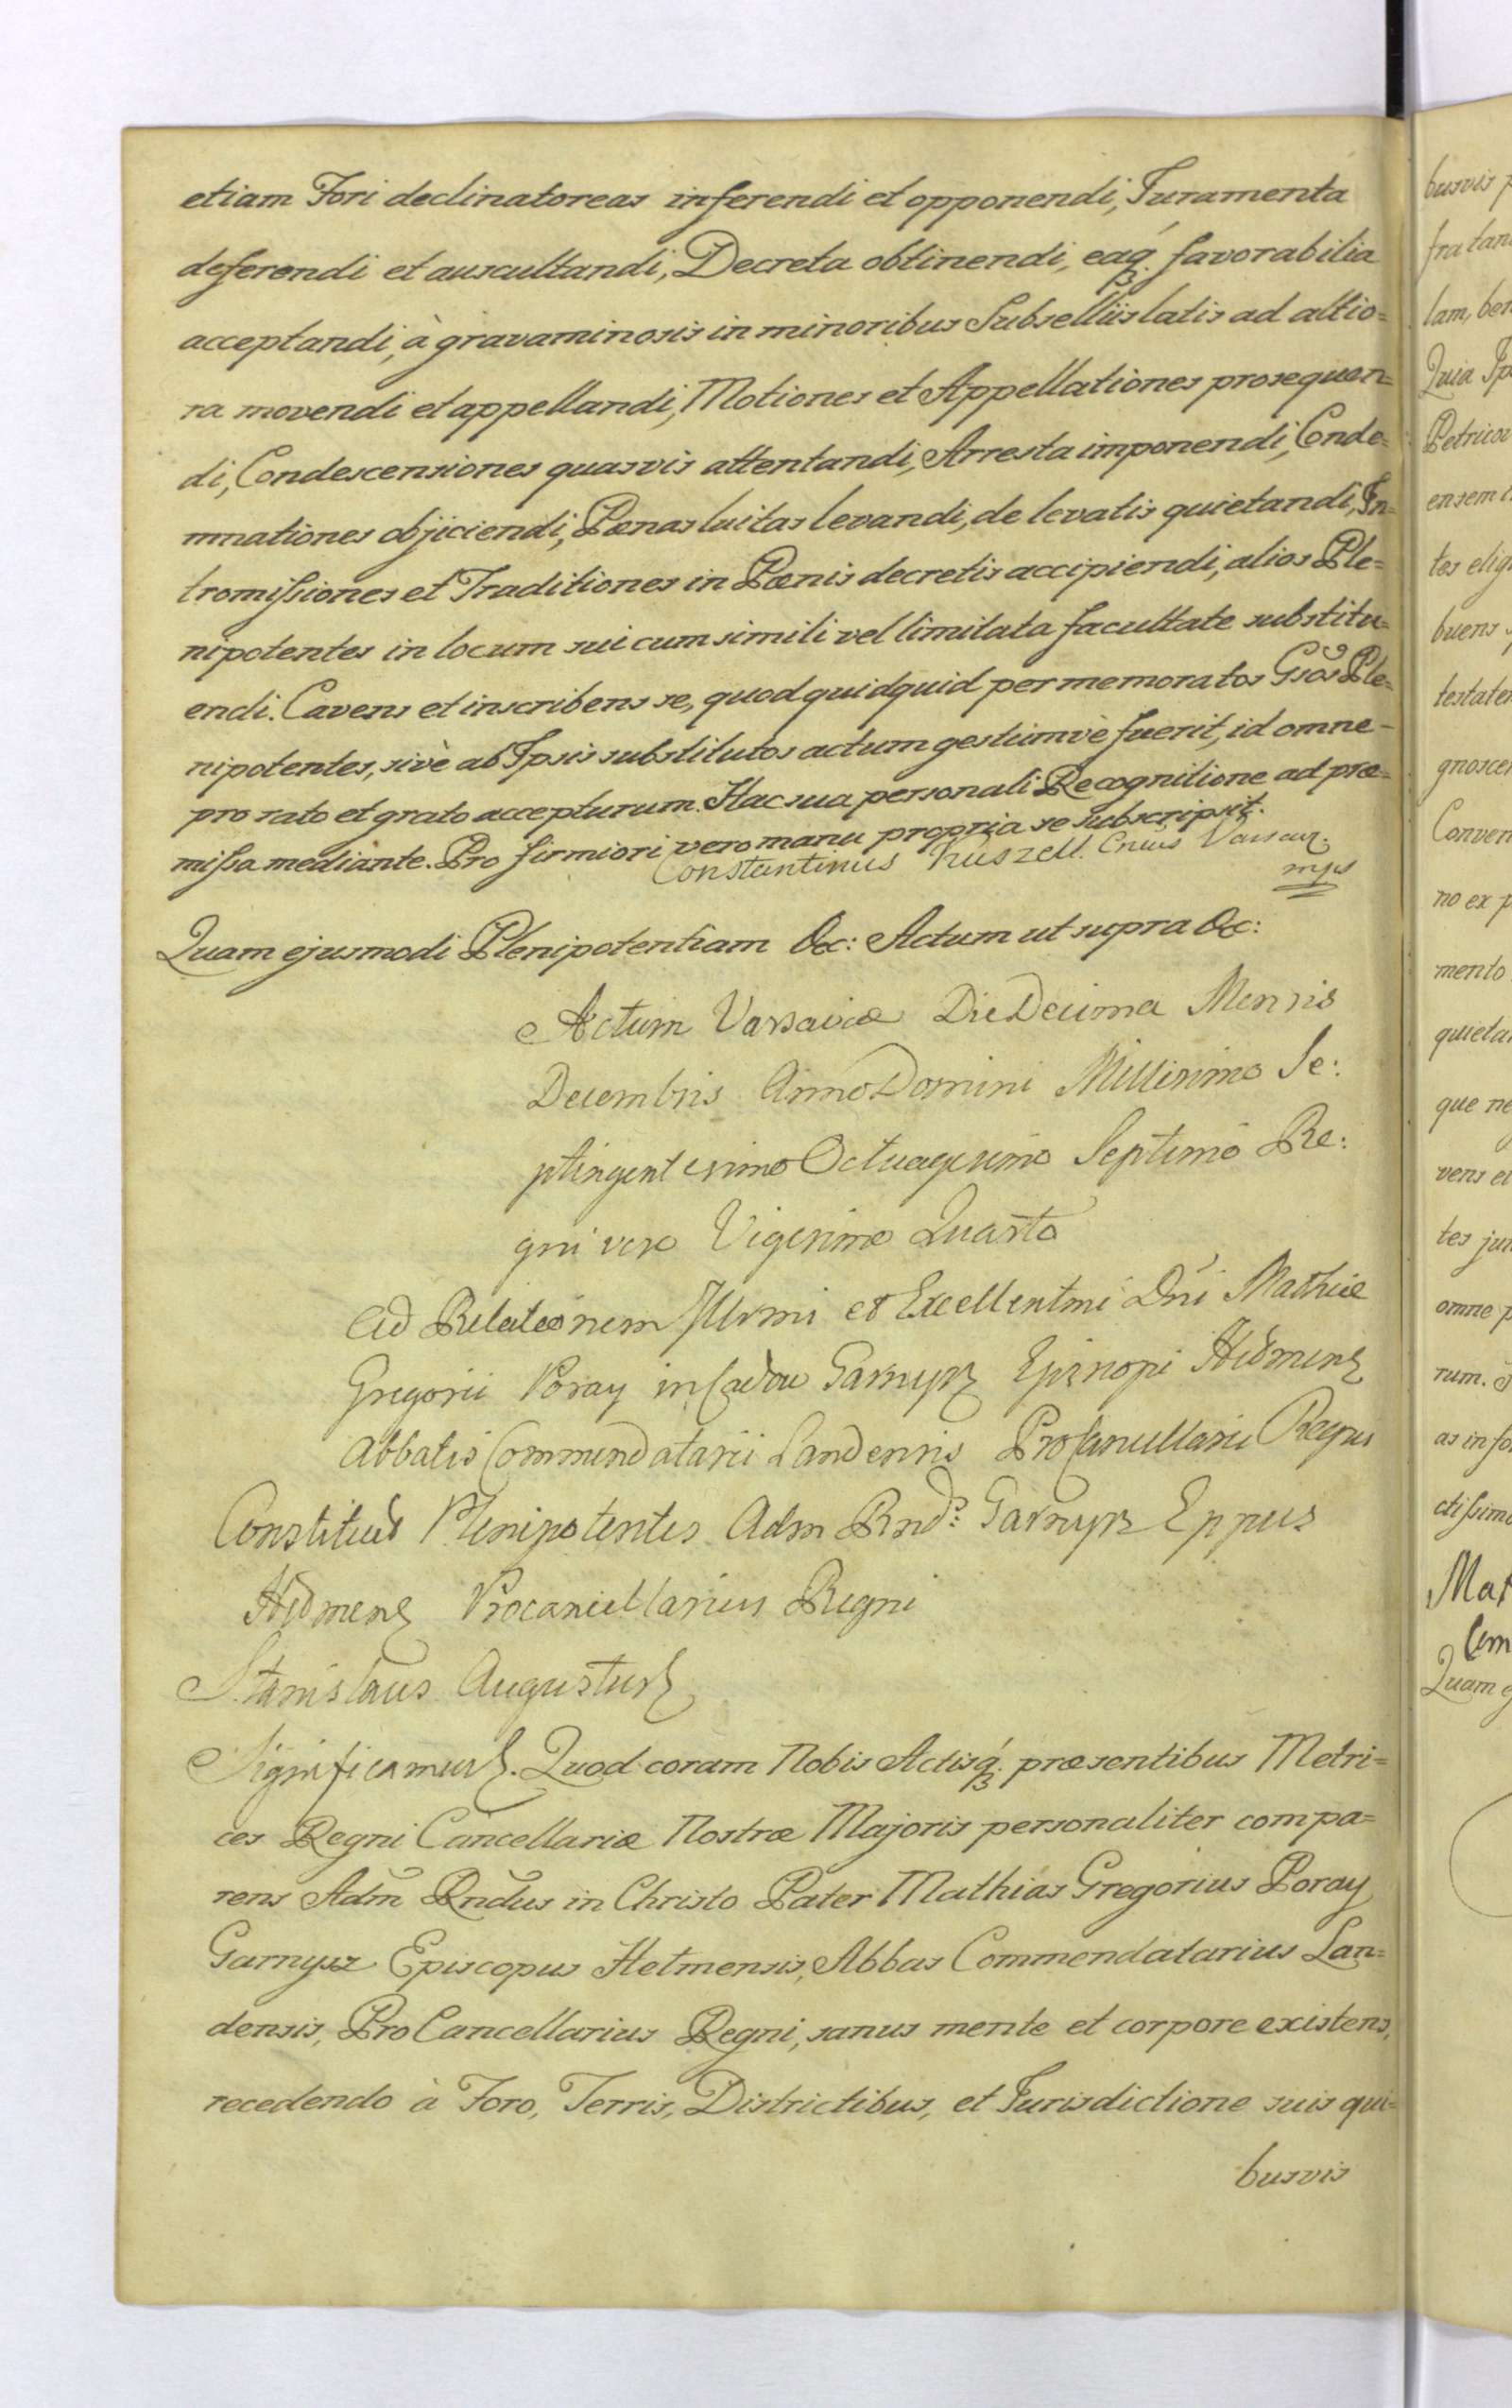 etiam Fori declinatoreas inferendi et opponendi, Juramenta
deferendi et auscultandi, Decreta obtinendi, eaq́ꝫ favorabilia
acceptandi, à gravaminosis in minoribus Subselliis latis ad altio=
ra movendi et appellandi, Motiones et Appellationes prosequen=
di, Condescensiones quasvis attentandi, Arresta imponendi, Conde=
mnationes objiciendi, Pœnas luitas levandi, de levatis quietandi, In=
tromiſsiones et Traditiones in Pœnis decretis accipiendi, alios Ple=
nipotentes in locum sui cum simili vel limitata facultate substitu=
endi. Cavens et inscribens se, quod quidquid per memoratos Gsos Ple=
nipotentes, sivè ab Ipsis substitutos actum gestúmvè fuerit, id omne
pro rato et grato accepturum. Hac sua personali Recognitione ad præ=
miſsa mediante. Pro firmiori vero manu propria se subscripsit.
Constantinus Kuszell
mp
Quam ejusmodi Plenipotentiam &c: Actum ut supra &c:
Actum Varsaviæ Die Decima Mensis
Decembris Anno Domini Millesimo Se:
ptingentesimo Octuagesimo Septimo Re:
gni vero Vigesimo Quarto
Ad Relationem Illrmi et Excellentmi Dni Mathiæ
Gregorii Poray Garnysz Episcopi
Abbatis Commendatarii Landensis ProCancellarii Regni
Constituit Plenipotentes Adm Rnds: Garnysz Eppus
Procancellarius Regni
Stanislaus Augustus
Significamus. Quod coram Nobis Actisq́ꝫ præsentibus Metri=
ces Regni Cancellariæ Nostræ Majoris personaliter compa=
rens Adm̃ Rndus in Christo Pater Mathias Gregorius Poray
Garnysz Episcopus Helmensis, Abbas Commendatarius Lan=
densis, Pro Cancellarius Regni, sanus mente et corpore existens,
recedendo à Foro, Terris, Districtibus, et Jurisdictione suis qui=
busvis